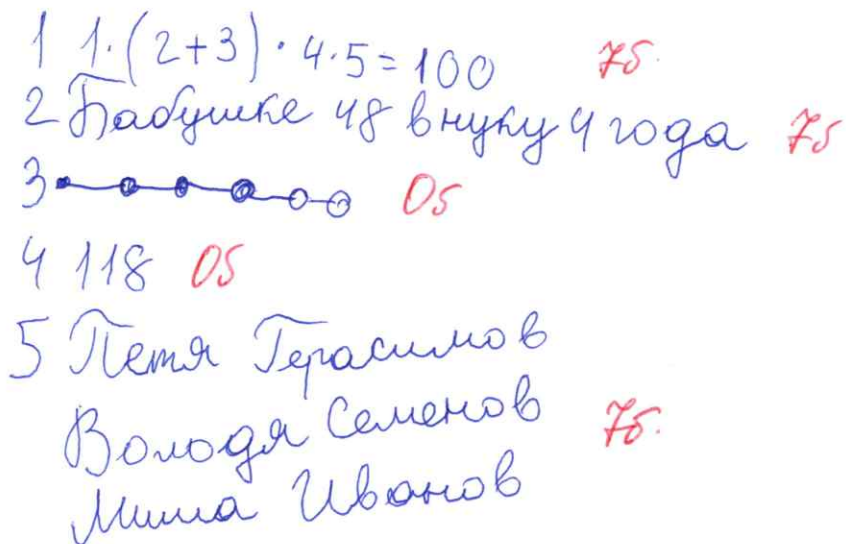 1 1·(2+3)·4·5=100 7б.
2 Бабушке 48 внуку 4 года 7б
3 0б
4 118 0б
5 Петя Герасимов
Володя Семенов 7б.
Миша Иванов